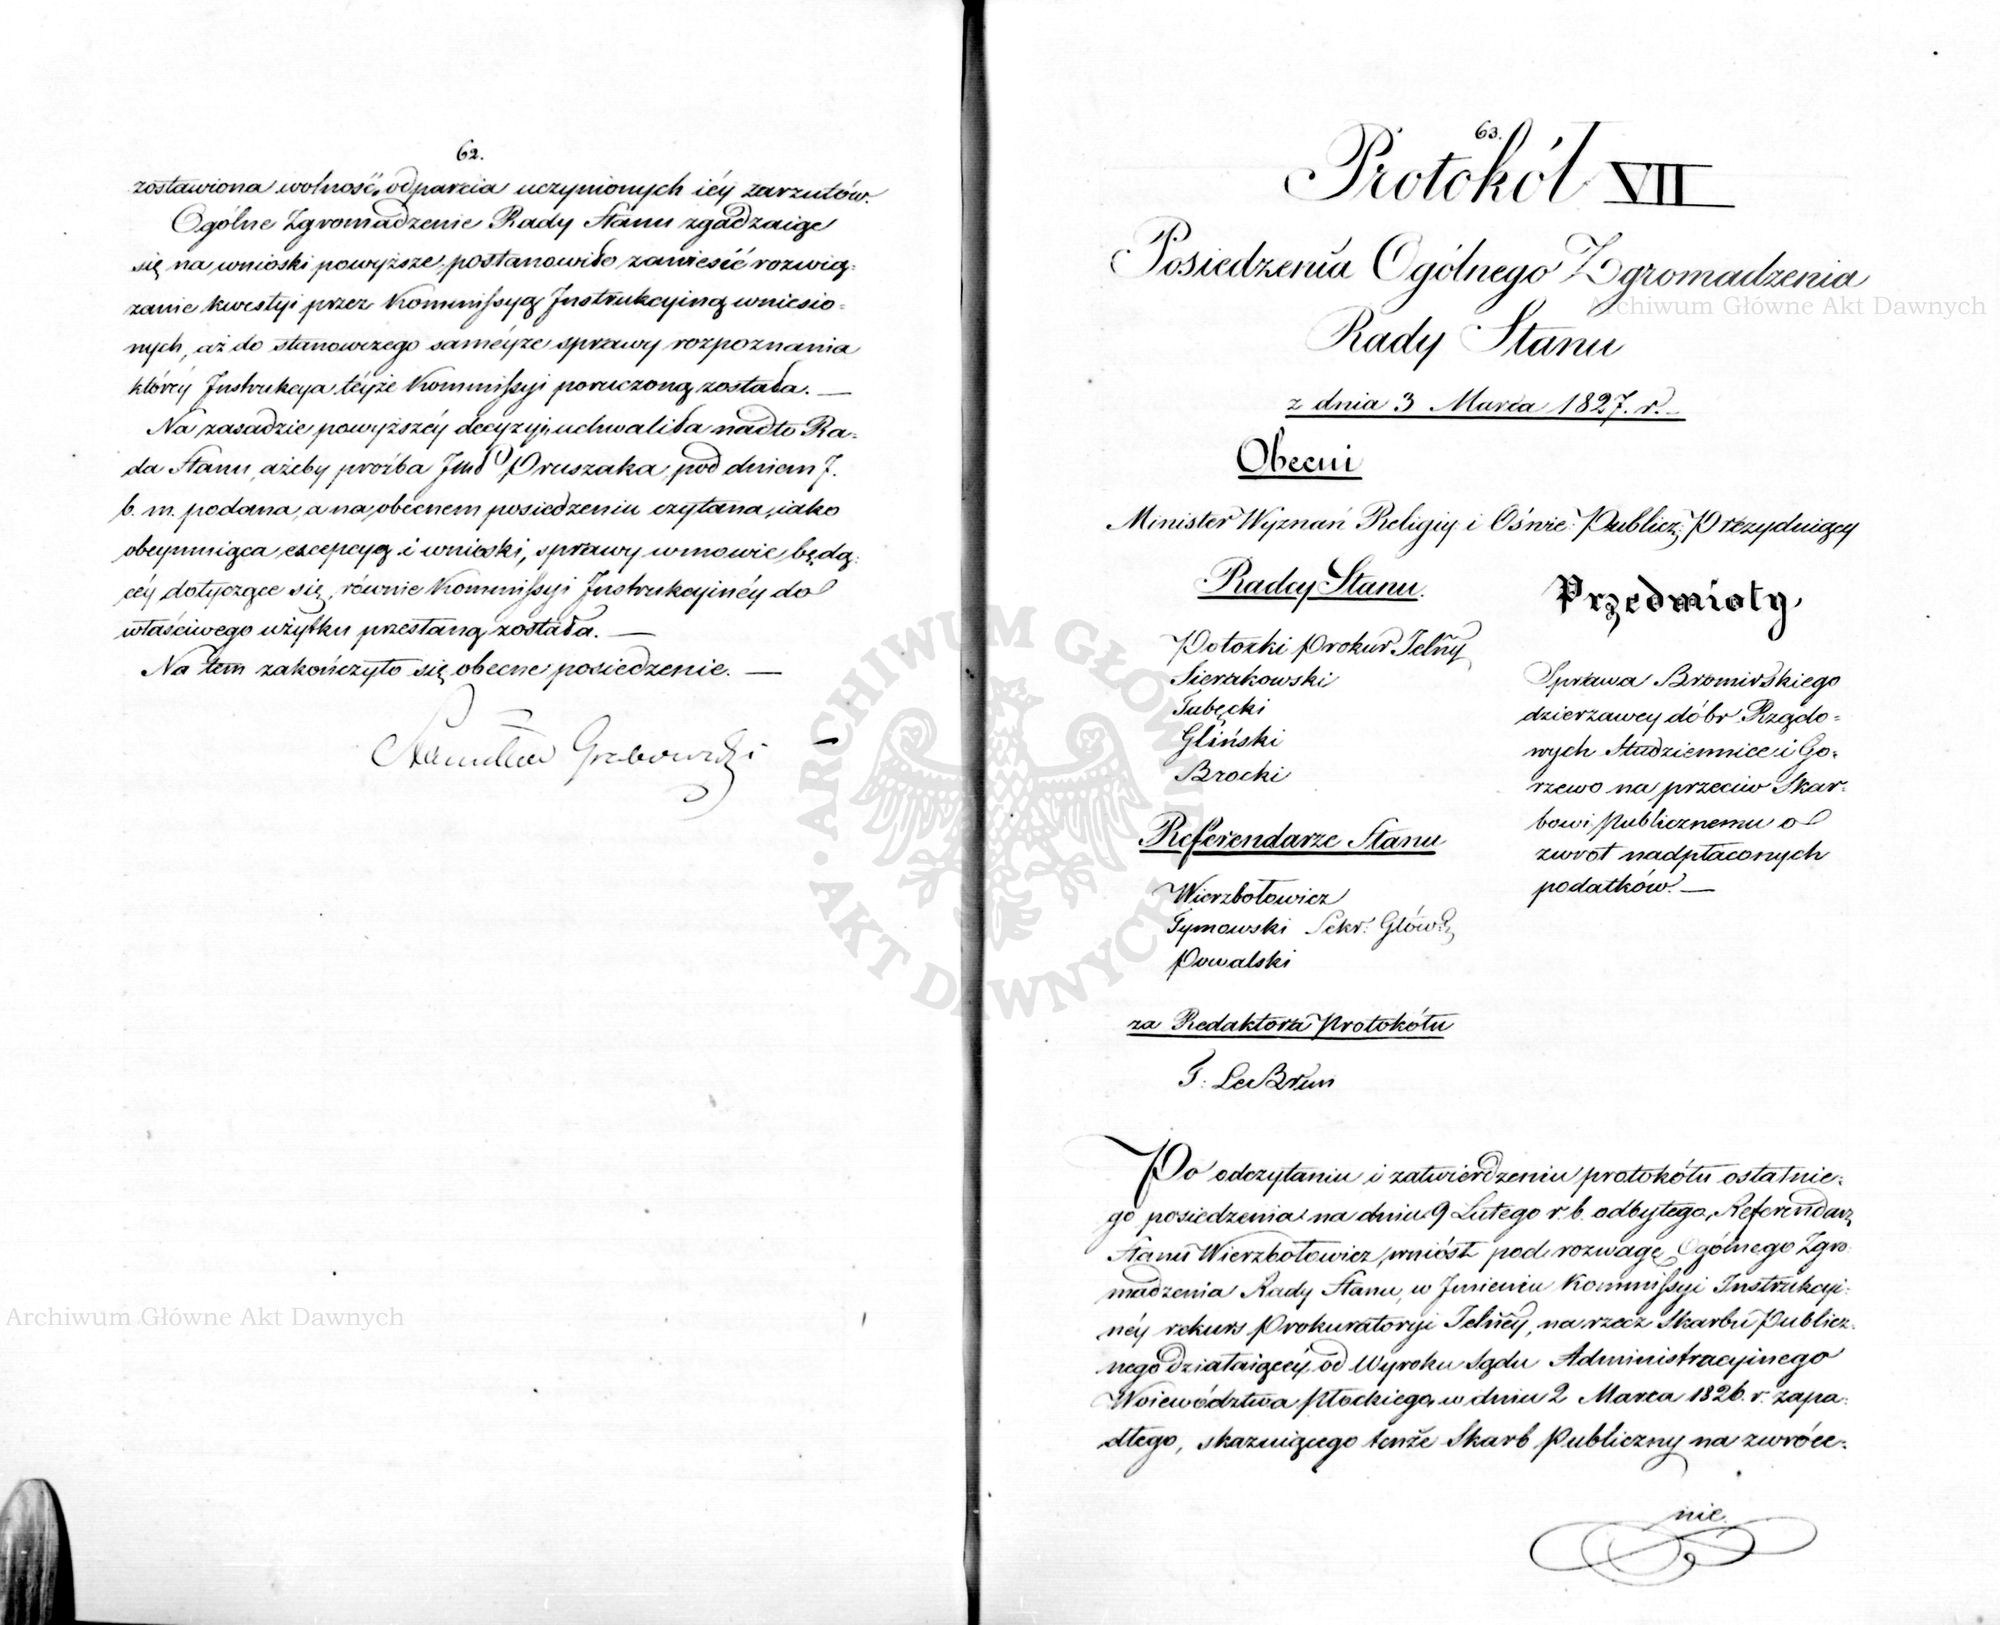 62.
zostawiona wolność, odparcia uczynionych iéy zarzutów.
Ogólne Zgromadzenie Rady Stanu zgadzaiąc
się na wnioski powyższe, postanowiło zawiesić rozwią-
zanie kwestyi przez Kommissyą Instrukcyiną wniesio-
nych, aż do stanowczego saméyże sprawy rozpoznania
któréy Instrukcya téyże Kommissyi poruczoną została. —
Na zasadzie powyższéy decyzyi, uchwaliła nadto Ra-
da Stanu, ażeby proźba Pruszaka, pod dniem 7.
b. m. podana, a na obecnem posiedzeniu czytana, iako
obeymuiąca excepcyą i wnioski, sprawy w mowie będą-
céy dotyczące się, równie Kommissyi Instrukcyinéy do
właściwego użytku przesłaną została. —
Na tem zakończyło się obecne posiedzenie. —
Stanisław Grabowski
63.
Protokół VII
Posiedzenia Ogólnego Zgromadzenia
Rady Stanu
z dnia 3 Marca 1827. r. —
Obecni
Minister Wyznań Religiy i Oświe: Publicz: Prezyduiący
Radcy Stanu.
Potocki Prokur Jelny
Sierakowski
Łubęcki
Gliński
Brocki
Referendarze Stanu
Wierzbołowicz
Tymowski Sekr: Główny
Powalski
za Redaktora Protokółu
F: LeBrun
Przedmioty,
Sprawa Bromirskiego
dzierzawcy dóbr Rządo-
wych Studziennice i Go-
rzewo na przeciw Skar-
bowi Publicznemu o
zwrot nadpłaconych
podatków. —
Po odczytaniu i zatwierdzeniu protokółu ostatnie-
go posiedzenia na dniu 9 Lutego r. b. odbytego, Referendarz
Stanu Wierzbołowicz, wniósł pod rozwagę Ogólnego Zgro-
madzenia Rady Stanu, w Jmieniu Kommissyi Instrukcyi-
néy rekurs Prokuratoryi Jelnéy, na rzecz Skarbu Publicz-
nego działaiącéy, od Wyroku Sądu Administracyinego
Woiewództwa Płockiego, w dniu 2 Marca 1826. r. zapa-
dłego, skazuiącego tenże Skarb Publiczny na zwróce-
nie.
Archiwum Główne Akt Dawnych
Archiwum Główne Akt Dawnych
ARCHIWUM GŁÓWNE AKT DAWNYCH